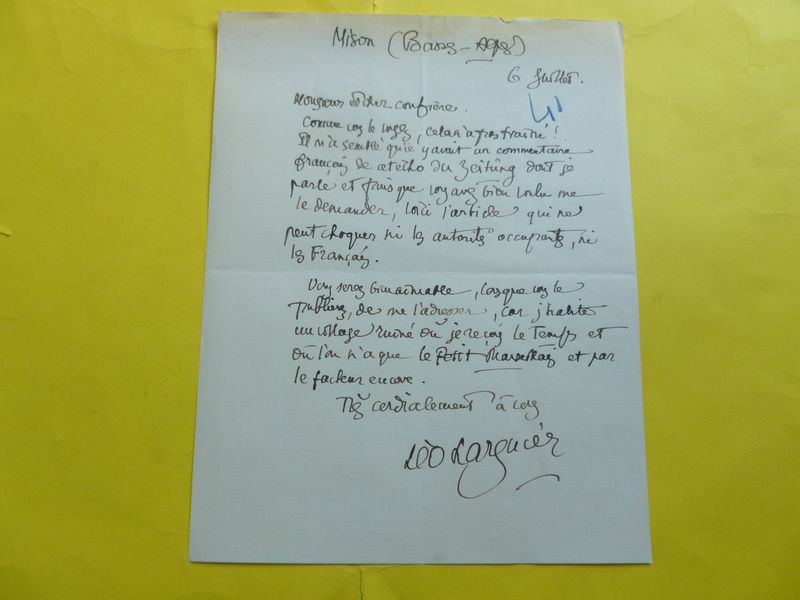 Mison (Basses-Alpes)
6 Juillet.
41
Monsieur et cher confrère.
Comme vous le voyez, cela n'a pas traîné!
Il m'a semblé qu'il y avait un commentaire
français de cet écho du Zeitung dont je
parle et puisque vous avez bien voulu me
le demander, voici l'article qui ne
peut choquer ni les autorités occupantes, ni
les Français.
Vous serez bien aimable, lorsque vous le
publierez, de me l'adresser, car j'habite
un village ruiné où je reçois le Temps et
où l'on n'a que le Petit Marseillais et par
le facteur encore.
Très cordialement à vous
Léo Larguier